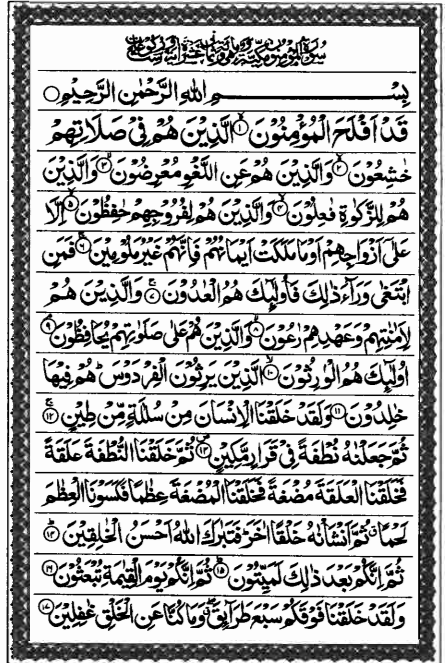 سُوْرَةُ الْمُؤْمِنُوْنَ مَكِّيَّةٌ
بِسْمِ اللهِ الرَّحْمٰنِ الرَّحِيْمِ ○
قَدْ اَفْلَحَ الْمُؤْمِنُوْنَ ۱ الَّذِيْنَ هُمْ فِيْ صَلَاتِهِمْ
خٰشِعُوْنَ ۲ وَالَّذِيْنَ هُمْ عَنِ اللَّغْوِ مُعْرِضُوْنَ ۳ وَالَّذِيْنَ
هُمْ لِلزَّكٰوةِ فٰعِلُوْنَ ۴ وَالَّذِيْنَ هُمْ لِفُرُوْجِهِمْ حٰفِظُوْنَ ۵ اِلَّا
عَلٰٓى اَزْوَاجِهِمْ اَوْ مَا مَلَكَتْ اَيْمَانُهُمْ فَاِنَّهُمْ غَيْرُ مَلُوْمِيْنَ ۶ فَمَنِ
ابْتَغٰى وَرَآءَ ذٰلِكَ فَاُولٰٓئِكَ هُمُ الْعٰدُوْنَ ۷ وَالَّذِيْنَ هُمْ
لِاَمٰنٰتِهِمْ وَعَهْدِهِمْ رٰعُوْنَ ۸ وَالَّذِيْنَ هُمْ عَلٰى صَلَوٰتِهِمْ يُحَافِظُوْنَ ۹
اُولٰٓئِكَ هُمُ الْوٰرِثُوْنَ ۱۰ الَّذِيْنَ يَرِثُوْنَ الْفِرْدَوْسَ ؕ هُمْ فِيْهَا
خٰلِدُوْنَ ۱۱ وَلَقَدْ خَلَقْنَا الْاِنْسَانَ مِنْ سُلٰلَةٍ مِّنْ طِيْنٍ ۱۲
ثُمَّ جَعَلْنٰهُ نُطْفَةً فِيْ قَرَارٍ مَّكِيْنٍ ۱۳ ثُمَّ خَلَقْنَا النُّطْفَةَ عَلَقَةً
فَخَلَقْنَا الْعَلَقَةَ مُضْغَةً فَخَلَقْنَا الْمُضْغَةَ عِظٰمًا فَكَسَوْنَا الْعِظٰمَ
لَحْمًا ثُمَّ اَنْشَاْنٰهُ خَلْقًا اٰخَرَ ؕ فَتَبٰرَكَ اللهُ اَحْسَنُ الْخٰلِقِيْنَ ۱۴
ثُمَّ اِنَّكُمْ بَعْدَ ذٰلِكَ لَمَيِّتُوْنَ ۱۵ ثُمَّ اِنَّكُمْ يَوْمَ الْقِيٰمَةِ تُبْعَثُوْنَ ۱۶
وَلَقَدْ خَلَقْنَا فَوْقَكُمْ سَبْعَ طَرَآئِقَ وَمَا كُنَّا عَنِ الْخَلْقِ غٰفِلِيْنَ ۱۷